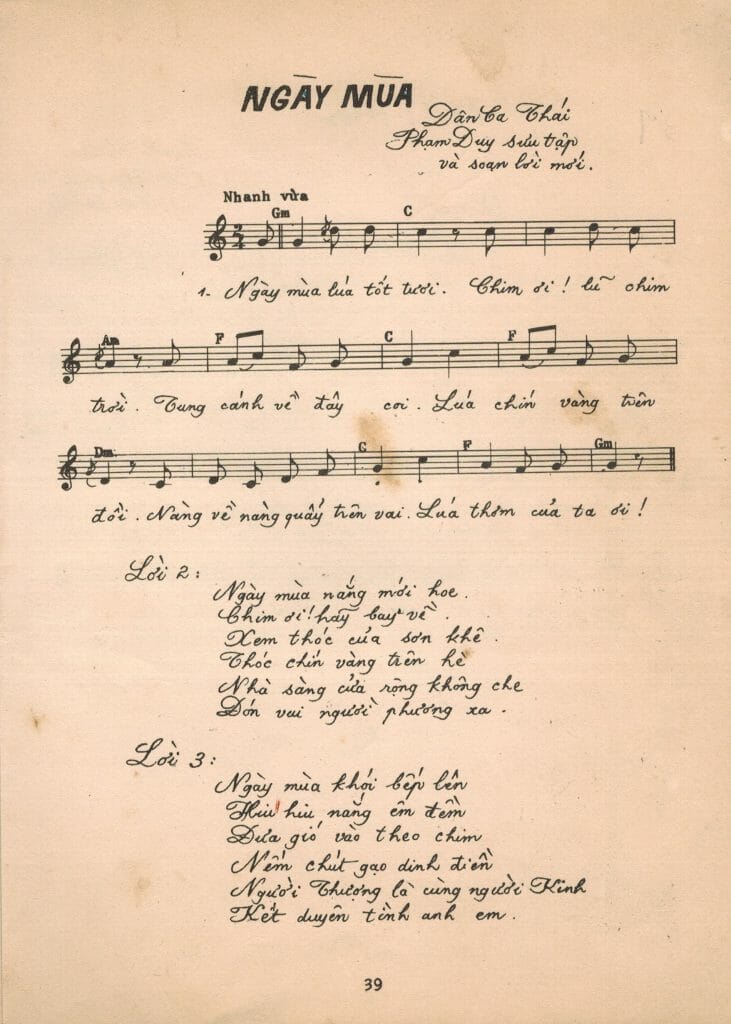 NGÀY MÙA
Dân Ca Thái
Phạm Duy sưu tập
và soạn lời mới.
Nhanh vừa
Gm C
2
4
1- Ngày mùa lúa tốt tươi. Chim ơi! lũ chim
Am F C F
trời. Tung cánh về đây coi. Lúa chín vàng trên
Dm. G F Gm
đồi. Nàng về nàng quẩy trên vai. Lúa thơm của ta ơi!
Lời 2:
Ngày mùa nắng mới hoe.
Chim ơi! hãy bay về.
Xem thóc của sơn khê.
Thóc chín vàng trên hè
Nhà sàng cửa rộng không che
Đón vai người phương xa.
Lời 3:
Ngày mùa khói bếp lên
Hiu hiu nắng êm đềm
Đưa gió vào theo chim
Nếm chút gạo dinh điền
Người Thượng là cùng người Kinh
Kết duyên tình anh em.
39